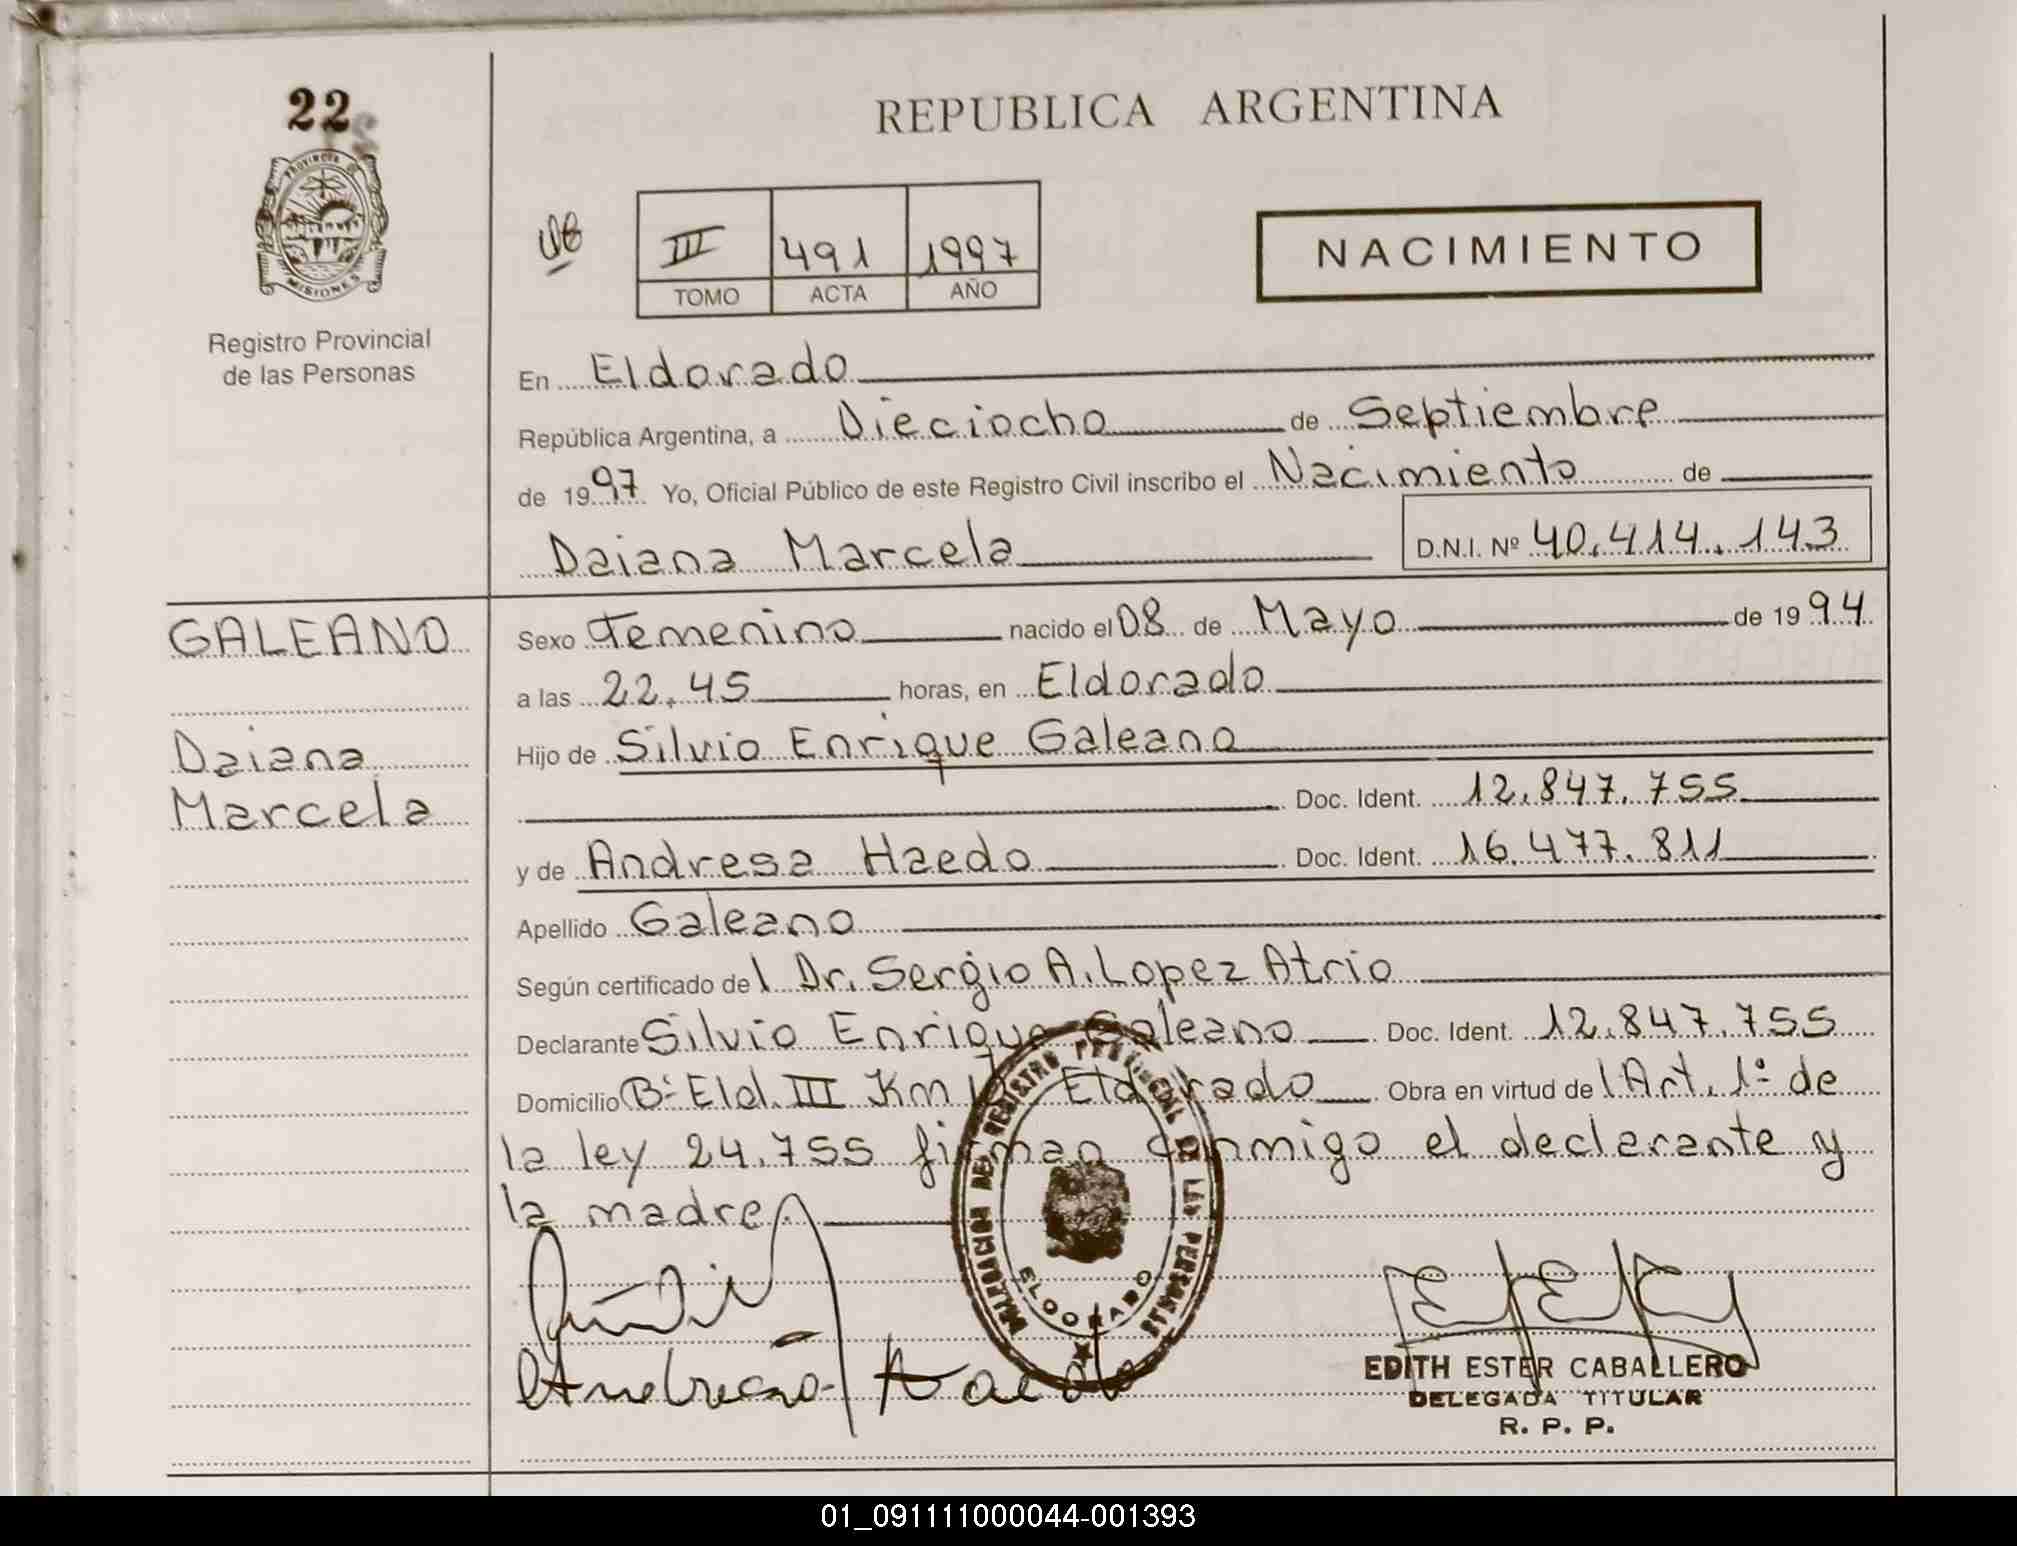 22
PROVINCIA DE
MISIONES
Registro Provincial
de las Personas
REPUBLICA ARGENTINA
III 491 1997
TOMO ACTA AÑO
NACIMIENTO
En Eldorado
República Argentina, a Dieciocho de Septiembre
de 1997 Yo, Oficial Público de este Registro Civil inscribo el Nacimiento de
Daiana Marcela D.N.I. Nº 40.414.143
GALEANO
Daiana
Marcela
Sexo Femenino nacido el 08 de Mayo de 1994
a las 22.45 horas, en Eldorado
Hijo de Silvio Enrique Galeano
Doc. Ident. 12.847.755
y de Andresa Haedo Doc. Ident. 16.477.811
Apellido Galeano
Según certificado del Dr. Sergio A. Lopez Atrio
Declarante Silvio Enrique Galeano Doc. Ident. 12.847.755
Domicilio Bº Eld. III Km Eldorado Obra en virtud del Art. 1º de
la ley 24.755 firman conmigo el declarante y
la madre.
DELEGACION DEL REGISTRO PROVINCIAL DE LAS PERSONAS
ELDORADO
Haedo
EDITH ESTER CABALLERO
DELEGADA TITULAR
R. P. P.
01_091111000044-001393